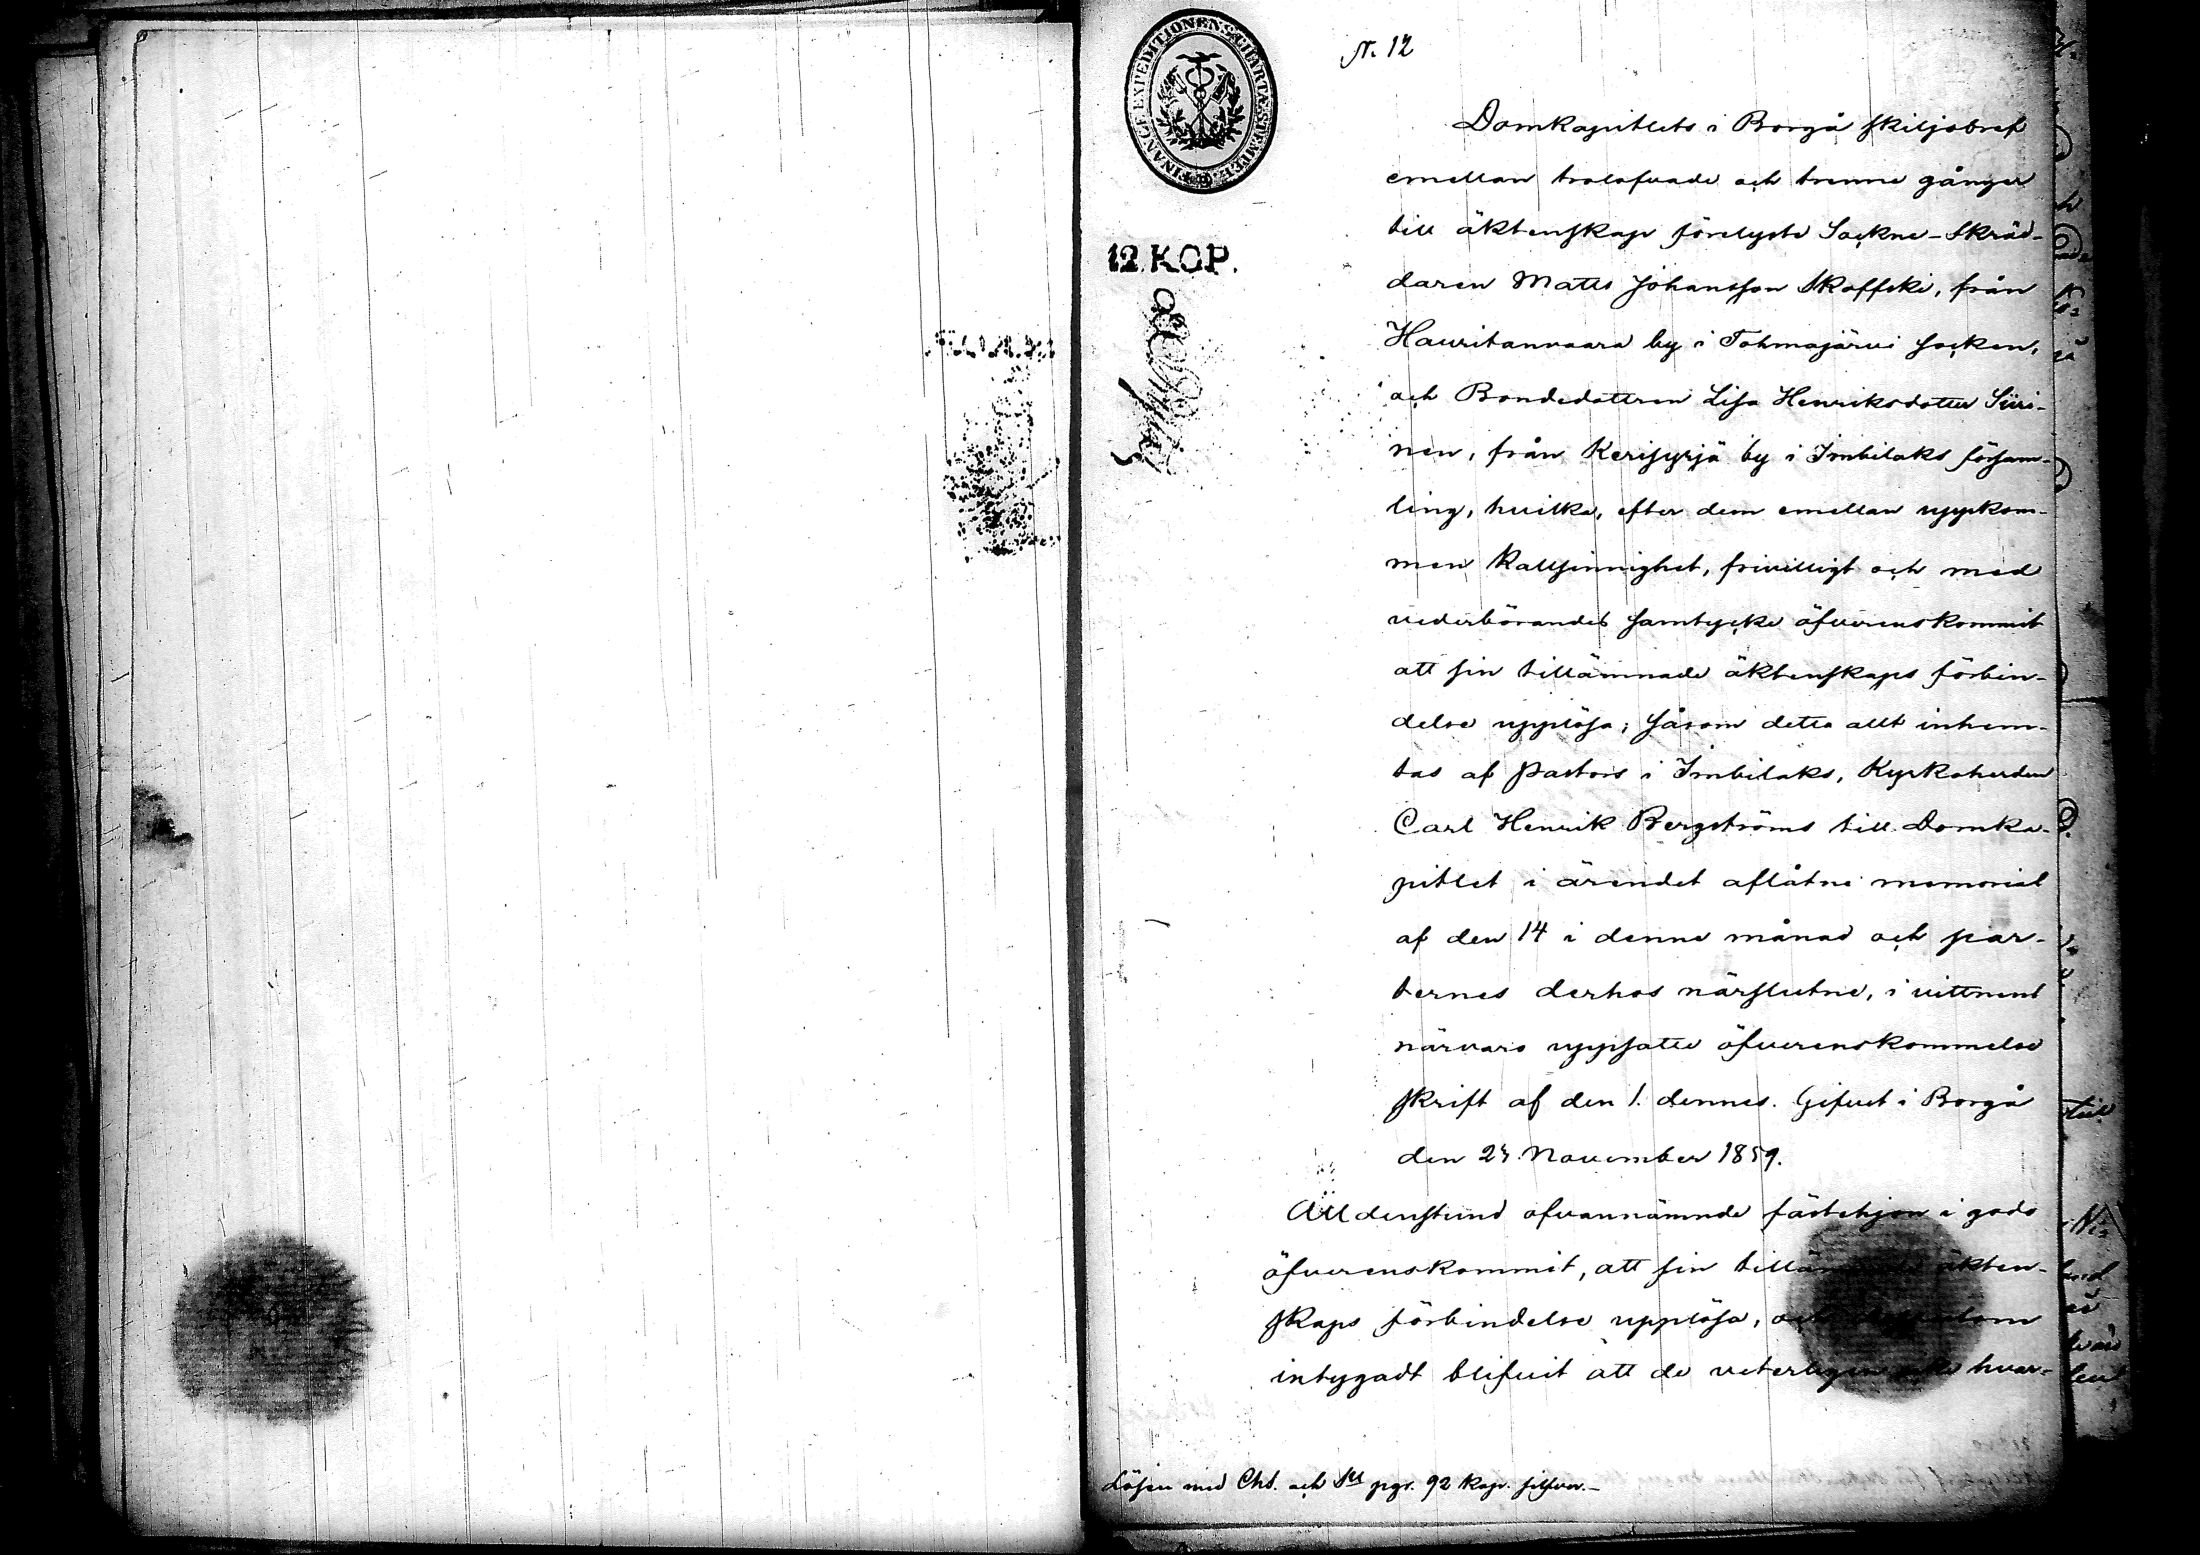 FINANCE EXPEDITIONENS CHARTÆ STEMPEL
N. 12
12. KOP.
Domkapitlets i Borgå skiljobref
emellan trolofvade och trenne gånger
till äktenskap förelyste Sockne-Skräd-
daren Matts Johansson Skoffski, från
Hauritanvaara by i Tohmajärvi socken,
och Bondedottren Lisa Henriksdotter Siiri-
nen, från Kerisyrjä by i Imbilaks försam-
ling, hvilka, efter dem emellan uppkom-
men kallsinnighet, frivilligt och med
vederbörandes samtycke öfverenskommit
att sin tillämnade äktenskaps förbin-
delse upplösa; såsom detta allt inhem-
tas af Pastors i Imbilaks, Kyrkoherden
Carl Henrik Bergströms till Domka-
pitlet i ärendet aflåtne memorial
af den 14 i denne månad och par-
ternes derhos närslutne, i vittnens
närvaro uppsatte öfverenskommelse
skrift af den 1. dennes. Gifvet i Borgå
den 23 November 1859.
Alldenstund ofvannämnde fästehjon i godo
öfverenskommit, att sin äkten-
skaps förbindelse upplösa, och dessutom
intygadt blifvit att de veterligen icke hvar-
Lösen med Cht. och Sll ppr. 92 kop. silfver.-